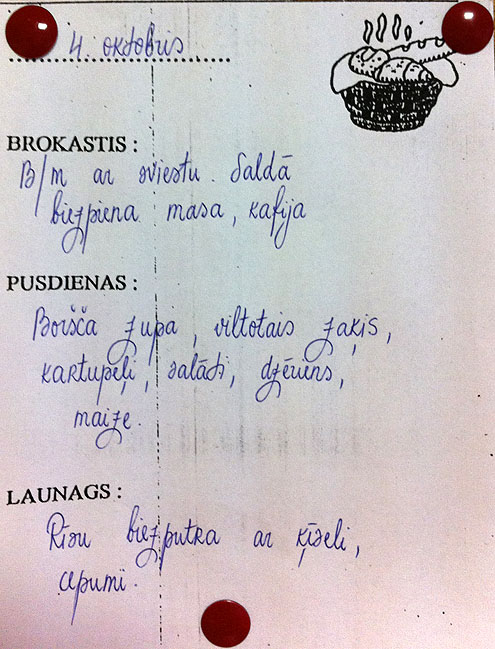 4. oktobris
BROKASTIS :
B/m ar sviestu. Saldā
biezpiena masa, kafija
PUSDIENAS :
Boršča zupa, viltotais zaķis,
kartupeļi, salāti, dzēriens,
maize.
LAUNAGS :
Rīsu biezputra ar ķīseli,
cepumi.